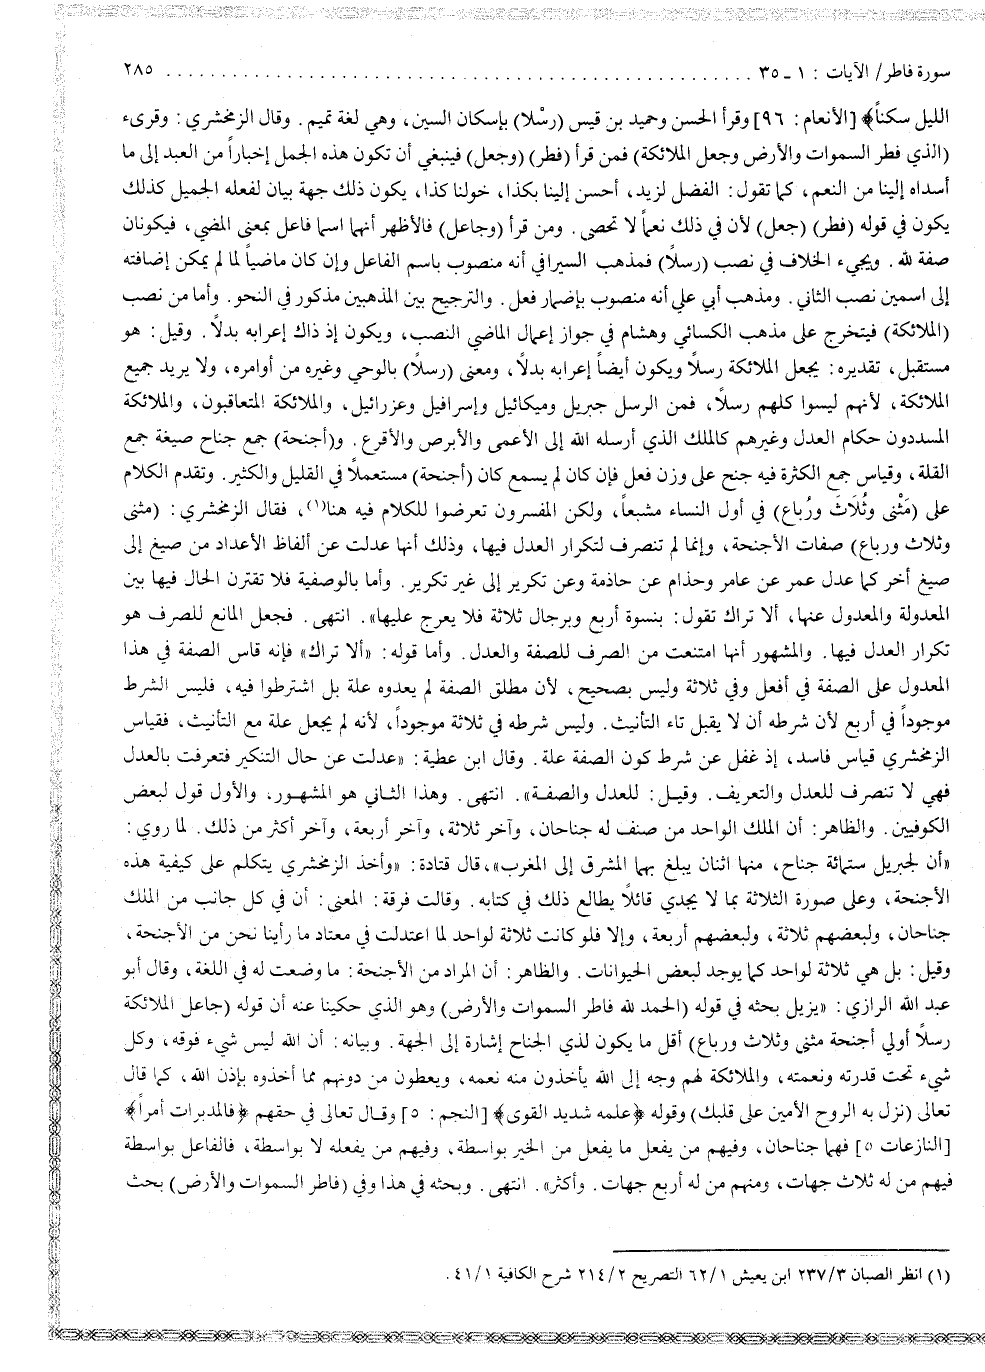 سورة فاطر/ الآيات : ١ ـ ٣٥ ........................................................ ٢٨٥
الليل سكناً﴾ [الأنعام : ٩٦] وقرأ الحسن وحميد بن قيس (رسْلا) بإسكان السين، وهي لغة تميم . وقال الزمخشري : وقرىء
(الذي فطر السموات والأرض وجعل الملائكة) فمن قرأ (فطر) (وجعل) فينبغي أن تكون هذه الجمل إخباراً من العبد إلى ما
أسداه إلينا من النعم، كما تقول : الفضل لزيد، أحسن إلينا بكذا، خولنا كذا، يكون ذلك جهة بيان لفعله الجميل كذلك
يكون في قوله (فطر) (جعل) لأن في ذلك نعماً لا تحصى . ومن قرأ (وجاعل) فالأظهر أنهما اسما فاعل بمعنى المضي، فيكونان
صفة لله . ويجيء الخلاف في نصب (رسلاً) فمذهب السيرافي أنه منصوب باسم الفاعل وإن كان ماضياً لما لم يمكن إضافته
إلى اسمين نصب الثاني . ومذهب أبي علي أنه منصوب بإضمار فعل . والترجيح بين المذهبين مذكور في النحو . وأما من نصب
(الملائكة) فيتخرج على مذهب الكسائي وهشام في جواز إعمال الماضي النصب، ويكون إذ ذاك إعرابه بدلاً . وقيل : هو
مستقبل، تقديره : يجعل الملائكة رسلاً ويكون أيضاً إعرابه بدلاً، ومعنى (رسلاً) بالوحي وغيره من أوامره، ولا يريد جميع
الملائكة، لأنهم ليسوا كلهم رسلاً، فمن الرسل جبريل وميكائيل وإسرافيل وعزرائيل، والملائكة المتعاقبون، والملائكة
المسددون حكام العدل وغيرهم كالملك الذي أرسله الله إلى الأعمى والأبرص والأقرع . و(أجنحة) جمع جناح صيغة جمع
القلة، وقياس جمع الكثرة فيه جنح على وزن فعل فإن كان لم يسمع كان (أجنحة) مستعملاً في القليل والكثير . وتقدم الكلام
على (مَثْنى وثُلاَثَ ورُباع) في أول النساء مشبعاً، ولكن المفسرون تعرضوا للكلام فيه هنا(١)، فقال الزمخشري : (مثنى
وثلاث ورباع) صفات الأجنحة، وإنما لم تنصرف لتكرار العدل فيها، وذلك أنها عدلت عن ألفاظ الأعداد من صيغ إلى
صيغ أخر كما عدل عمر عن عامر وحذام عن حاذمة وعن تكرير إلى غير تكرير . وأما بالوصفية فلا تقترن الحال فيها بين
المعدولة والمعدول عنها، ألا تراك تقول : بنسوة أربع وبرجال ثلاثة فلا يعرج عليها» . انتهى . فجعل المانع للصرف هو
تكرار العدل فيها . والمشهور أنها امتنعت من الصرف للصفة والعدل . وأما قوله : «ألا تراك» فإنه قاس الصفة في هذا
المعدول على الصفة في أفعل وفي ثلاثة وليس بصحيح، لأن مطلق الصفة لم يعدوه علة بل اشترطوا فيه، فليس الشرط
موجوداً في أربع لأن شرطه أن لا يقبل تاء التأنيث . وليس شرطه في ثلاثة موجوداً، لأنه لم يجعل علة مع التأنيث، فقياس
الزمخشري قياس فاسد، إذ غفل عن شرط كون الصفة علة . وقال ابن عطية : «عدلت عن حال التنكير فتعرفت بالعدل
فهي لا تنصرف للعدل والتعريف . وقيل : للعدل والصفة» . انتهى . وهذا الثاني هو المشهور، والأول قول لبعض
الكوفيين . والظاهر : أن الملك الواحد من صنف له جناحان، وآخر ثلاثة، وآخر أربعة، وآخر أكثر من ذلك . لما روي :
«أن لجبريل ستمائة جناح، منها اثنان يبلغ بهما المشرق إلى المغرب»، قال قتادة : «وأخذ الزمخشري يتكلم على كيفية هذه
الأجنحة، وعلى صورة الثلاثة بما لا يجدي قائلاً يطالع ذلك في كتابه . وقالت فرقة : المعنى : أن في كل جانب من الملك
جناحان، ولبعضهم ثلاثة، ولبعضهم أربعة، وإلا فلو كانت ثلاثة لواحد لما اعتدلت في معتاد ما رأينا نحن من الأجنحة،
وقيل : بل هي ثلاثة لواحد كما يوجد لبعض الحيوانات . والظاهر : أن المراد من الأجنحة : ما وضعت له في اللغة، وقال أبو
عبد الله الرازي : «يزيل بحثه في قوله (الحمد لله فاطر السموات والأرض) وهو الذي حكينا عنه أن قوله (جاعل الملائكة
رسلاً أولي أجنحة مثنى وثلاث ورباع) أقل ما يكون لذي الجناح إشارة إلى الجهة . وبيانه : أن الله ليس شيء فوقه، وكل
شيء تحت قدرته ونعمته، والملائكة لهم وجه إلى الله يأخذون منه نعمه، ويعطون من دونهم مما أخذوه بإذن الله، كما قال
تعالى (نزل به الروح الأمين على قلبك) وقوله ﴿علمه شديد القوى﴾ [النجم : ٥] وقال تعالى في حقهم ﴿فالمدبرات أمراً﴾
[النازعات ٥] فهما جناحان، وفيهم من يفعل ما يفعل من الخير بواسطة، وفيهم من يفعله لا بواسطة، فالفاعل بواسطة
فيهم من له ثلاث جهات، ومنهم من له أربع جهات . وأكثر» . انتهى . وبحثه في هذا وفي (فاطر السموات والأرض) بحث
(١) انظر الصبان ٢٣٧/٣ ابن يعيش ٦٢/١ التصريح ٢١٤/٢ شرح الكافية ٤١/١ .